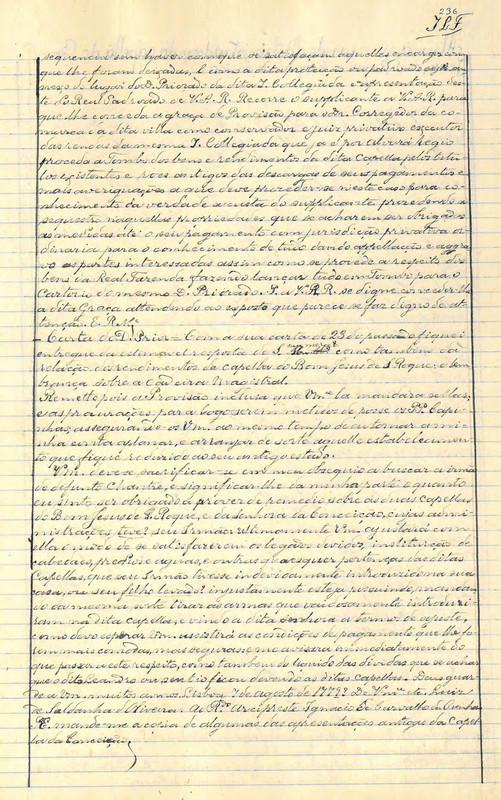 236
sequencia sem haver com que se satisfaçam aquelles encargos com
que lhe foram deixadas, e com a dita protecção
lugar do D. Priorado da dita I. Collegiada e apresentação
te do Real Padroado de V.A.R. Recorre o supplicante a V.A.R. para
que lhe conceda a graça de Provisão para o Dr. Corregedor da co-
marca da dita villa como conservador e juiz privativo executor
das rendas da mesma I. Collegiada que
proceda a Tombo dos bens e rendimentos da dita Capella pelos titu-
los existentes e roes antigos das descargas de seus pagamentos e
mais averiguações a que deve proceder-se n'este caso para co-
nhecimento da verdade a custa do supplicante procedendo a
sequestro n'aquellas propriedades que se acharem ser obrigadas
até o seu pagamento com jurisdicção privativa or-
dinaria para o conhecimento de tudo dando appellação e aggra-
vo as partes interessadas assim como se procede a respeito dos
bens da Real Fazenda fazendo lançar tudo em Tombo para o
Cartorio do mesmo D. Priorado. P. a V.A.R. se digne conceder-lhe
a dita Graça attendendo ao exposto que parece se faz digno de at-
tenção. E. R. M.
- Carta do D. Prior = Com a sua carta de 23 do passado fiquei
entregue da estimavel resposta de como tambem da
relação dos rendimentos da Capella do Bom Jesus de S. Roque, e lem-
brança sobre a Cadeira Magistral.
Remette pois a Provisão inclusa que Vm.ce la mandara sellar,
e as procurações para logo serem metidos de posse os P.es Capu-
chos, assegurando-os Vm. ao mesmo tempo de eu tomar a mi-
nha conta aplanar, e arranjar de sorte aquelle estabelecimen-
to que fique reduzido ao seu antigo estado.
V.m. deve-se sacrificar-se em meu obsequio a buscar a irmã
do defunto Chantre, e significar-lhe da minha parte o quanto
eu sinto ser obrigado a prover de remedio sobre as duas Capellas
do Bom Jesus de S. Roque, e da Senhora da Conceição, cujas admi-
nistrações teve seu Irmão: Ultimamente Vm. ajustará com
ella o modo de se satisfazerem os legados devidos, instituição de
cabedaes, predios e aguas, e outras quaesquer pertenças das ditas
Capellas, que seu Irmão tivesse indevidamente introduzido na sua
casa, ou seu filho levado injustamente esteja possuindo, mandan-
do da mesma sorte tirar as armas que vaidosamente introduzi-
ram na dita capella, e vindo a dita Senhora a termos de ajuste,
como devo esperar Vm. assistirá as condições de pagamento que lhe fo-
rem mais comodas, mas seguras, e me avisará immediatamente do
que passar a este respeito, como tambem do liquido das dividas que se achar
que o dito Leandro ou seu tio ficou devendo as ditas capellas. Deus guar-
de a Vm. muitos annos. Lisboa 7 de agosto de
de Saldanha d'Oliveira. Ao R.do Arcipreste Ignacio de Carvalho da Cunha
P.E. mande-me a copia de algumas das apresentações antigas da Capel-
la da Conceição